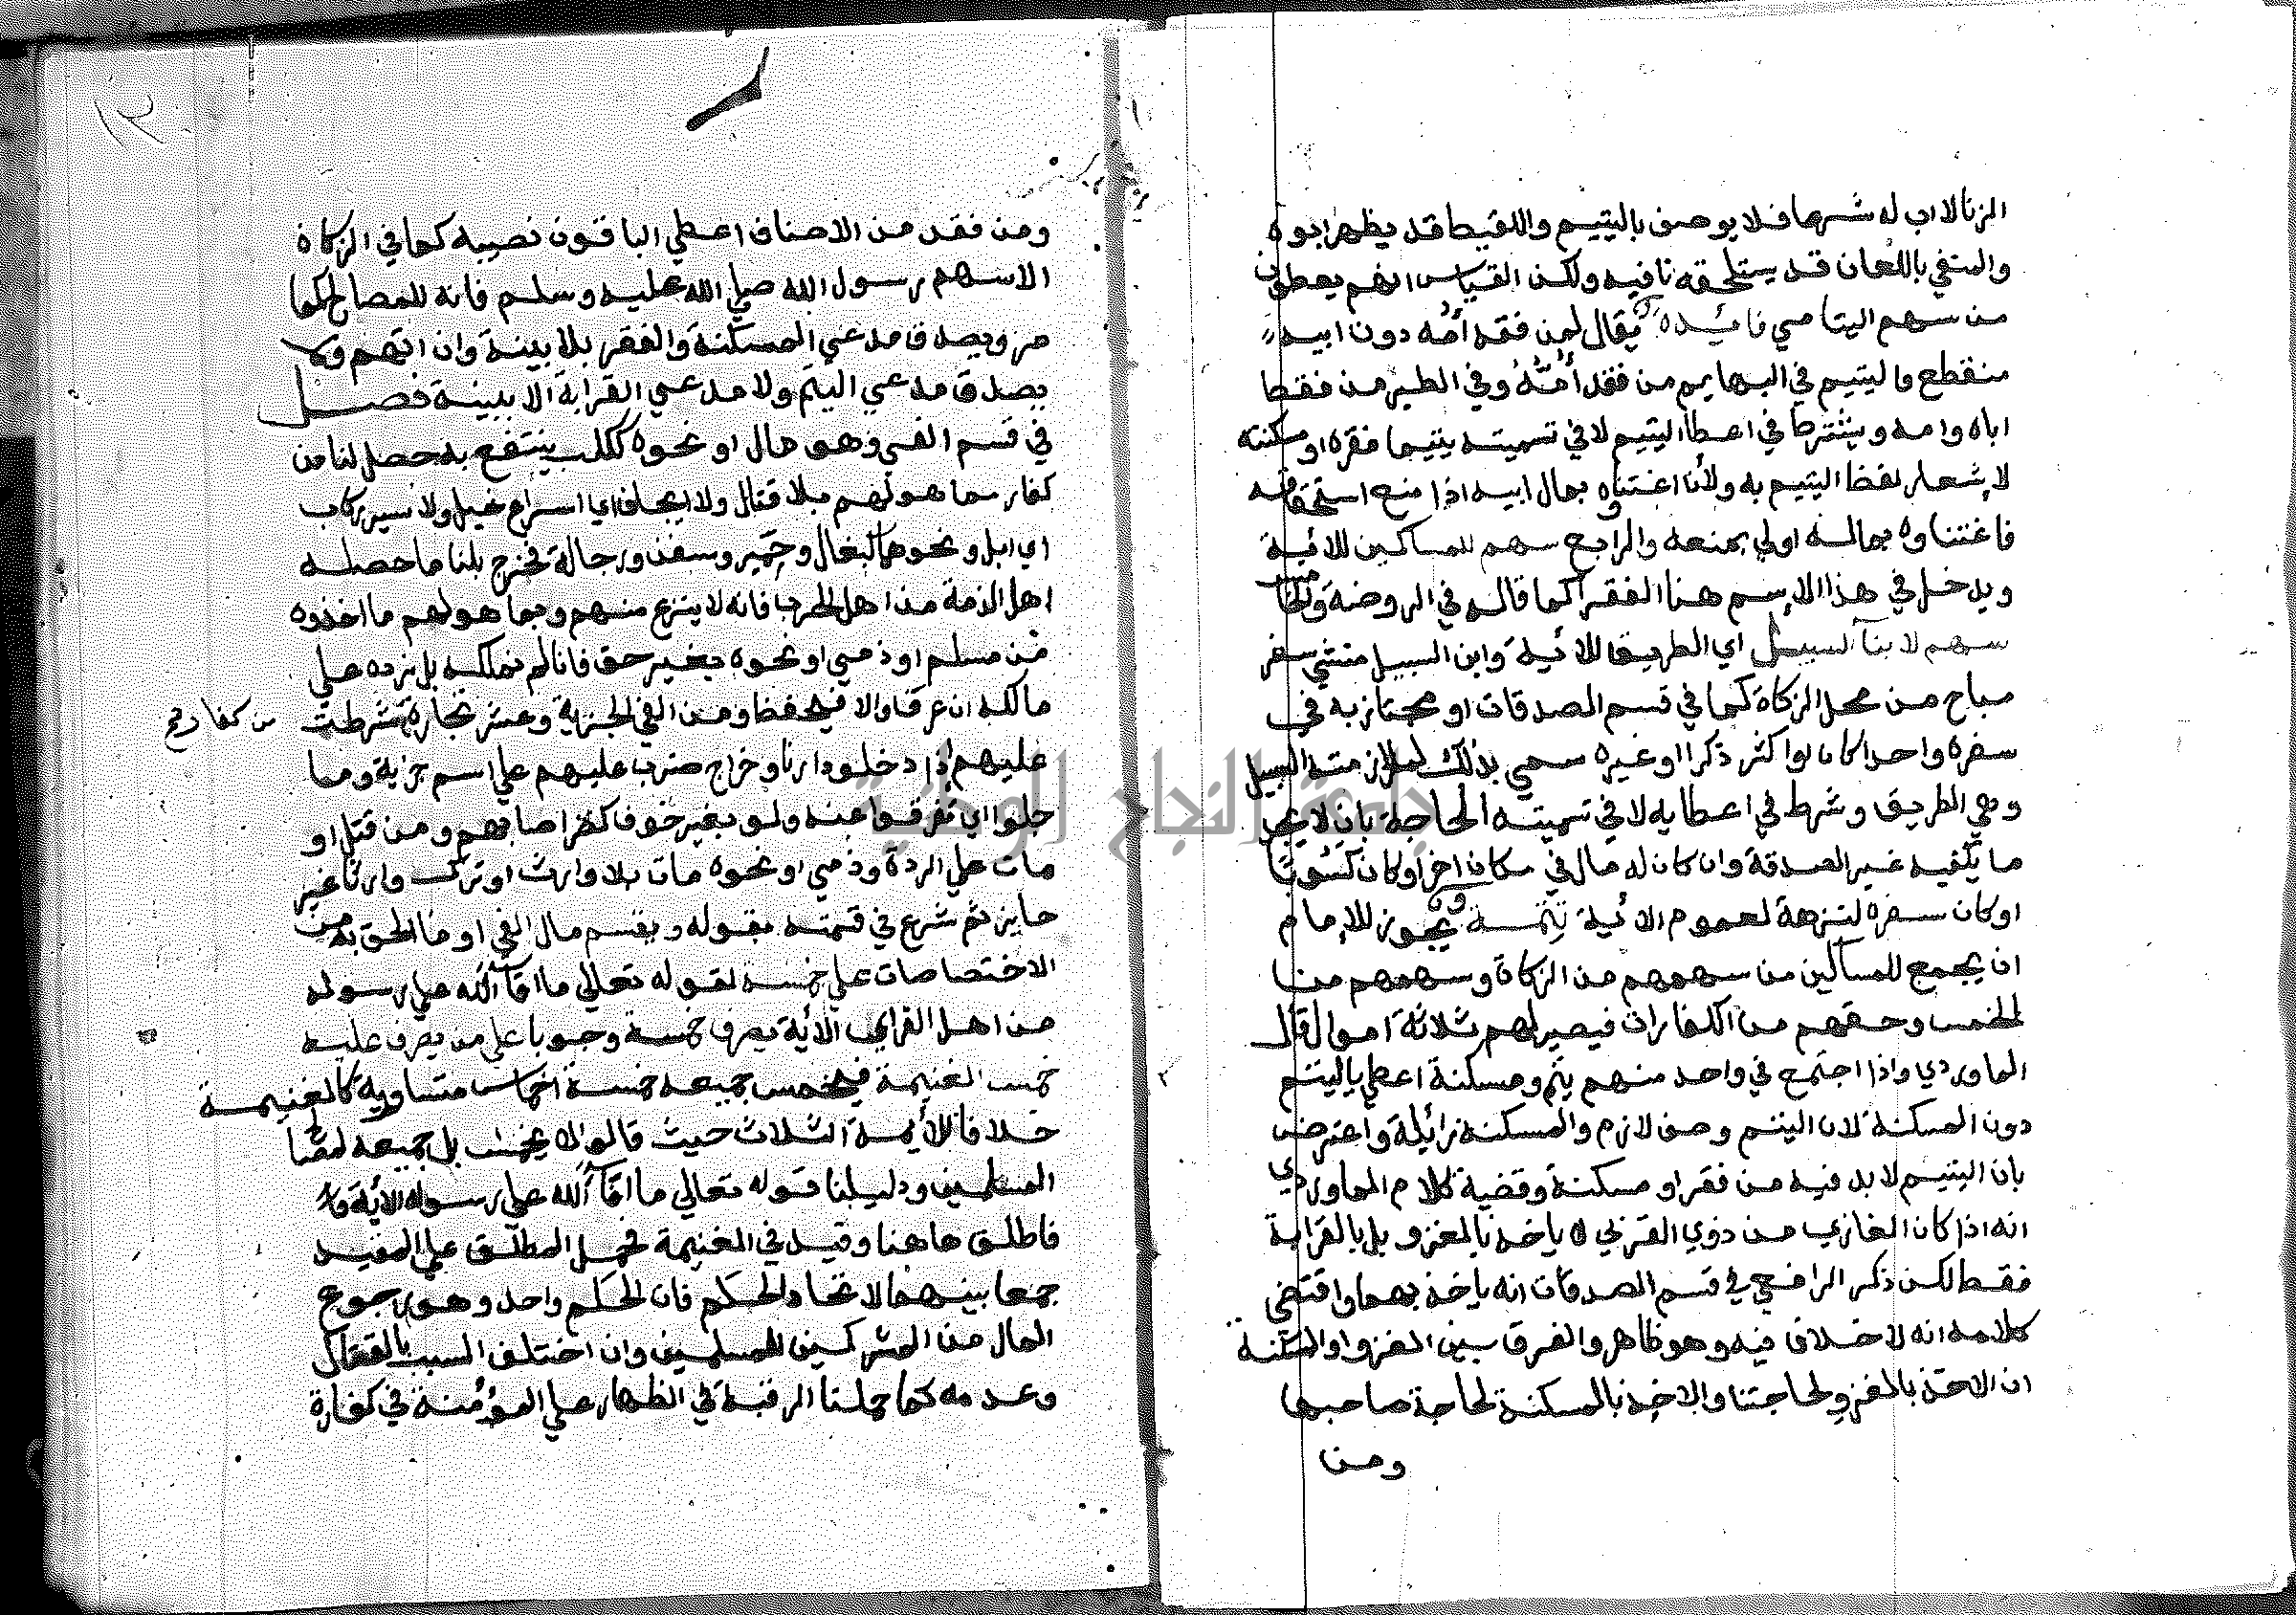 الزنا لا اب له شرعا فلا يوصف باليتيم واللقيط قد يظهر ابوه
والمنفي باللعان قد يستلحقه نافيه ولكن القياس انهم يعطون
من سهم اليتامي فائده يقال لمن فقد أمه دون ابيه
منقطع واليتيم في البهايم من فقد أُمَّهُ وفي الطير من فقط
اباه وامه ويشترط في اعطا اليتيم لا في تسميته يتيما فقره او مسكنته
لاشعار لفظ اليتيم به ولأن اغتناه بمال ابيه اذا منع استحقاقه
فاغتناوه بماله اولي بمنعه والرابع سهم للمساكين للائية
ويدخل في هذا الاسم هنا الفقرا كما قاله في الروضة والخامس
سهم لابنآ السبيل اي الطريق للائية وابن السبيل منشي سفر
مباح من محل الزكاة كما في قسم الصدقات او مجتاز به في
سفره واحدا كان او اكثر ذكرا او غيره سمي بذلك لملازمته السبيل
وهي الطريق وشرط في اعطايه لا في تسميته الحاجة بان لا يجد
ما يكفيه غير الصدقة وان كان له مال في مكان اخر او كان كسوبا
او كان سفره لنزهة لعموم الائية تتمة ويجوز للإمام
ان يجمع للمساكين من سهمهم من الزكاة وسهمهم من
الخمس وحقهم من الكفارات فيصير لهم ثلاثة اموال قال
الماوردي واذا اجتمع في واحد منهم يتم ومسكنة اعطي باليتم
دون المسكنة لان اليتم وصف لازم والمسكنة زائلة واعترض
بان اليتيم لا بد فيه من فقر او مسكنة وقضية كلام الماوردي
انه اذا كان الغازي من ذوي القربي لا ياخذ بالغزو بل بالقرابة
فقط لكن ذكر الرافعي في قسم الصدقات انه ياخذ بهما واقتضي
كلامه انه لا خلاف فيه وهو ظاهر والفرق بين الغزو والمسكنة
ان الاخذ بالغزو لحاجتنا والاخذ بالمسكنة لحاجة صاحبها
ومن
ومن فقد من الاصناف اعطي الباقون نصيبه كما في الزكاة
الاسهم رسول الله صلي الله عليه وسلم فانه للمصالح كما
مر ويصدق مدعي المسكنة والفقر بلا بينة وان اتهم ولا
يصدق مدعي اليتم ولا مدعي القرابة الا ببينة فصل
في قسم الفي وهو مال او نحوه ككلب ينتفع به حصل لنا من
كفار مما هو لهم بلا قتال ولا ايجاف اي اسراع خيل ولا سير ركاب
اي ابل ونحوها كبغال وحمير وسفن ورجالة فخرج بلنا ما حصله
اهل الذمة من اهل الحرب فانه لا ينزع منهم وبما هو لهم ما اخذوه
من مسلم او ذمي او نحوه بغير حق فانا لم نملكه بل نرده علي
مالكه ان عرف والا فيحفظ ومن الفي الجزية وعشر تجارة شرطت
من كفار صح
عليهم اذا دخلوا دارنا وخراج ضرب عليهم علي اسم جزية وما
جلوا اي تفرقوا عنه ولو بغير خوف كضر اصابهم ومن قتل او
مات علي الردة وذمي او نحوه مات بلا وارث او ترك وارثا غير
حايز ثم شرع في قسمته بقوله ويقسم مال الفي او ما الحق به من
الاختصاصات علي خمسة لقوله تعالي ما افآ ٱلله علي رسوله
من اهل القرا الاية يصرف خمسه وجوبا علي من يصرف عليه
خمس الغنيمة فيخمس جميعه خمسة اخماس متساوية كالغنيمة
خلافا للأيمة الثلاث حيث قالوا لا يخمس بل جميعه لمصالح
المسلمين ودليلنا قوله تعالي ما افآ ٱلله علي رسوله الاية
فاطلق هاهنا وقيد في الغنيمة فحمل المطلق علي المقيد
جمعا بينهما لاتحاد الحكم فان الحكم واحد وهو رجوع
المال من المشركين للمسلمين وان اختلف السبب بالقتال
وعدمه كما حملنا الرقبة في الظهار علي المؤمنة في كفارة
جامعة النجاح الوطنية